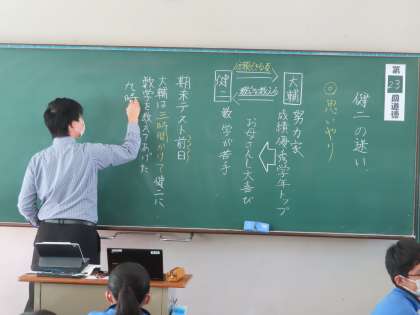 第23回道徳
健二の迷い
◎思いやり
大輔
努力家
成績優秀学年トップ
お母さんも大喜び
健二
数学が苦手
期末テスト前日
大輔は三時間かけて健二に
数学を教えてあげた。
九時